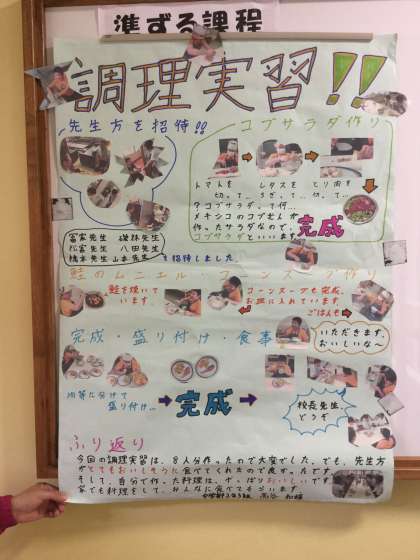 準ずる課程
調理実習!!
先生方を招待!!
コブサラダ作り
トマトを
切って、
レタスを
ちぎって、
とり肉を
切って、
コブサラダって何…
メキシコのコブさんが
作ったサラダなので、
コブサラダといいます。
完成
冨家先生
松富先生 八田先生
橋本先生 山本先生 を招待しました。
鮭のムニエル・コーンスープ作り
鮭を焼いて
います。
コーンスープも完成。
お皿に入れています。
ごはんも
完成・盛り付け・食事
いただきます。
おいしいな〜
均等に分けて
盛り付け…
完成
校長先生、
どうぞ
ふり返り
今回の調理実習は、8人分作ったので大変でした。でも、先生方
がとてもおいしそうに食べてくれたので良かったです。
そして、自分で作った料理は、やっぱりおいしいです。
家でも料理をして、みんなに食べてもらいます。